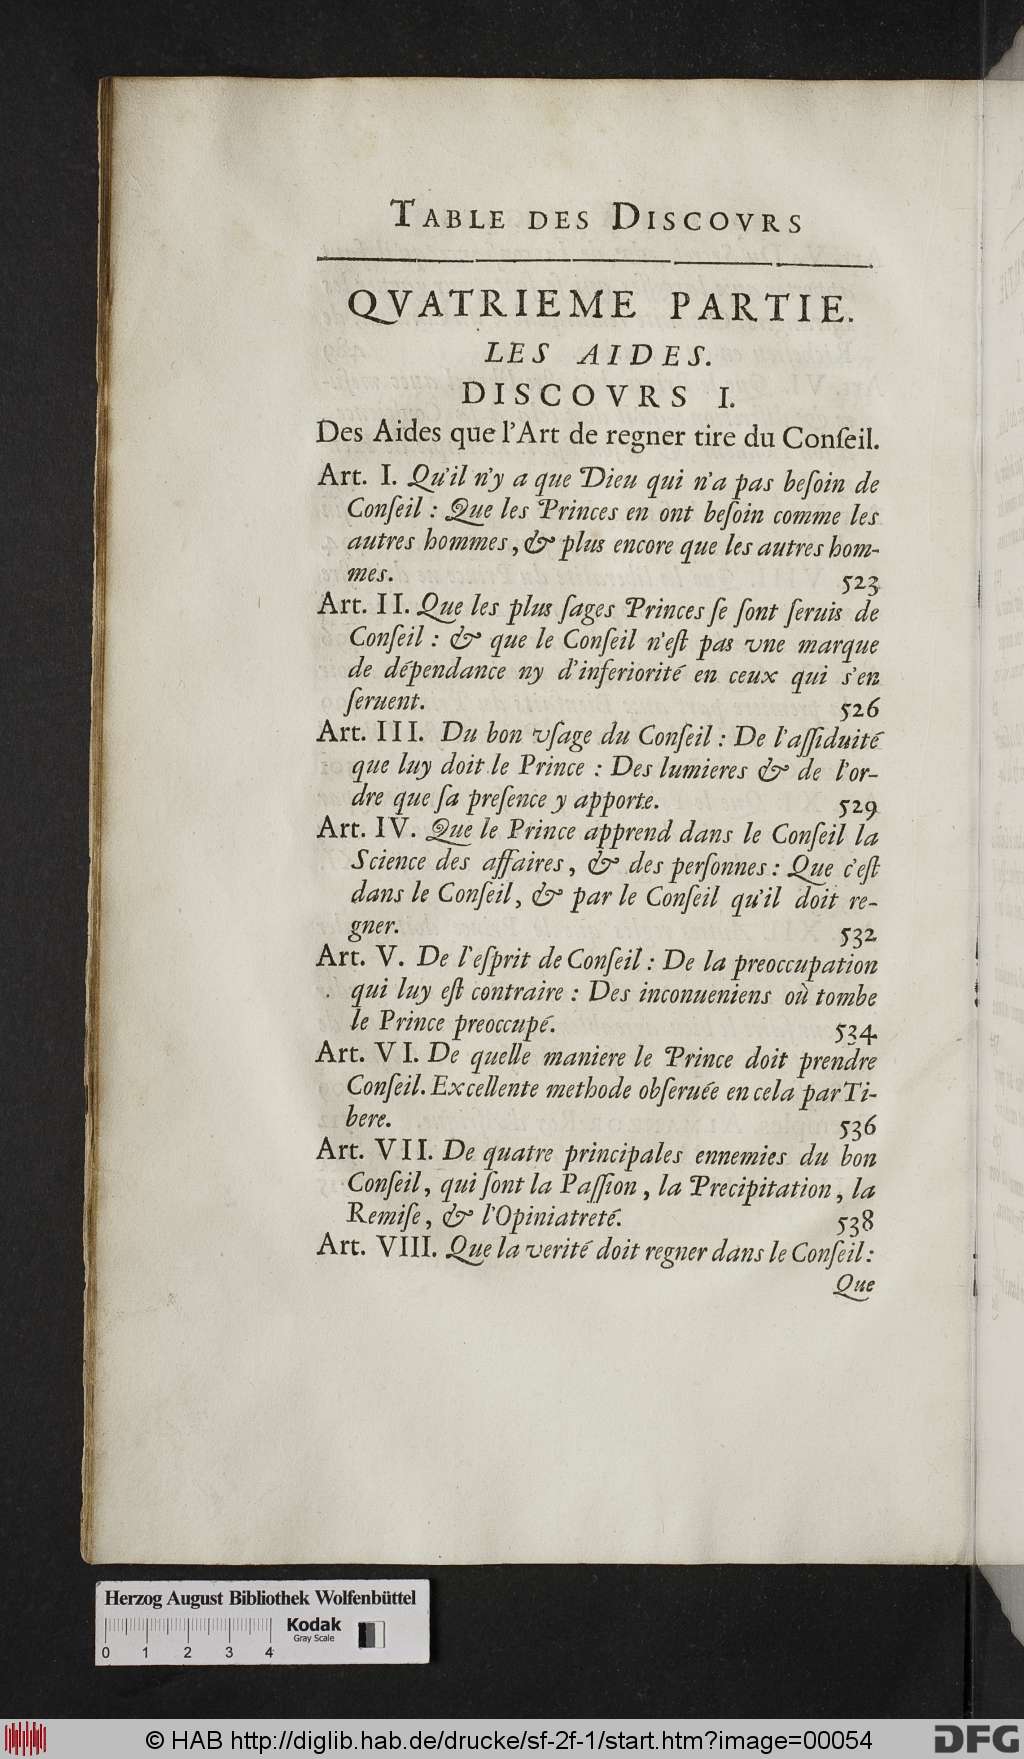 TABLE DES DISCOVRS
QVATRIEME PARTIE.
LES AIDES.
DISCOVRS I.
Des Aides que l'Art de regner tire du Conſeil.
Art. I. Qu'il n'y a que Dieu qui n'a pas beſoin de
Conſeil : Que les Princes en ont beſoin comme les
autres hommes, & plus encore que les autres hom-
mes. 523
Art. II. Que les plus ſages Princes ſe ſont ſeruis de
Conſeil : & que le Conſeil n'eſt pas vne marque
de dépendance ny d'inferiorité en ceux qui s'en
ſeruent. 526
Art. III. Du bon vſage du Conſeil : De l'aſſiduité
que luy doit le Prince : Des lumieres & de l'or-
dre que ſa preſence y apporte. 529
Art. IV. Que le Prince apprend dans le Conſeil la
Science des affaires, & des perſonnes : Que c'eſt
dans le Conſeil, & par le Conſeil qu'il doit re-
gner. 532
Art. V. De l'eſprit de Conſeil : De la preoccupation
qui luy eſt contraire : Des inconueniens où tombe
le Prince preoccupé. 534
Art. VI. De quelle maniere le Prince doit prendre
Conſeil. Excellente methode obſeruée en cela par Ti-
bere. 536
Art. VII. De quatre principales ennemies du bon
Conſeil, qui ſont la Paſſion, la Precipitation, la
Remiſe, & l'Opiniatreté. 538
Art. VIII. Que la verité doit regner dans le Conſeil :
Que
Herzog August Bibliothek Wolfenbüttel
Kodak
Gray Scale
0 1 2 3 4
© HAB http://diglib.hab.de/drucke/sf-2f-1/start.htm?image=00054
DFG